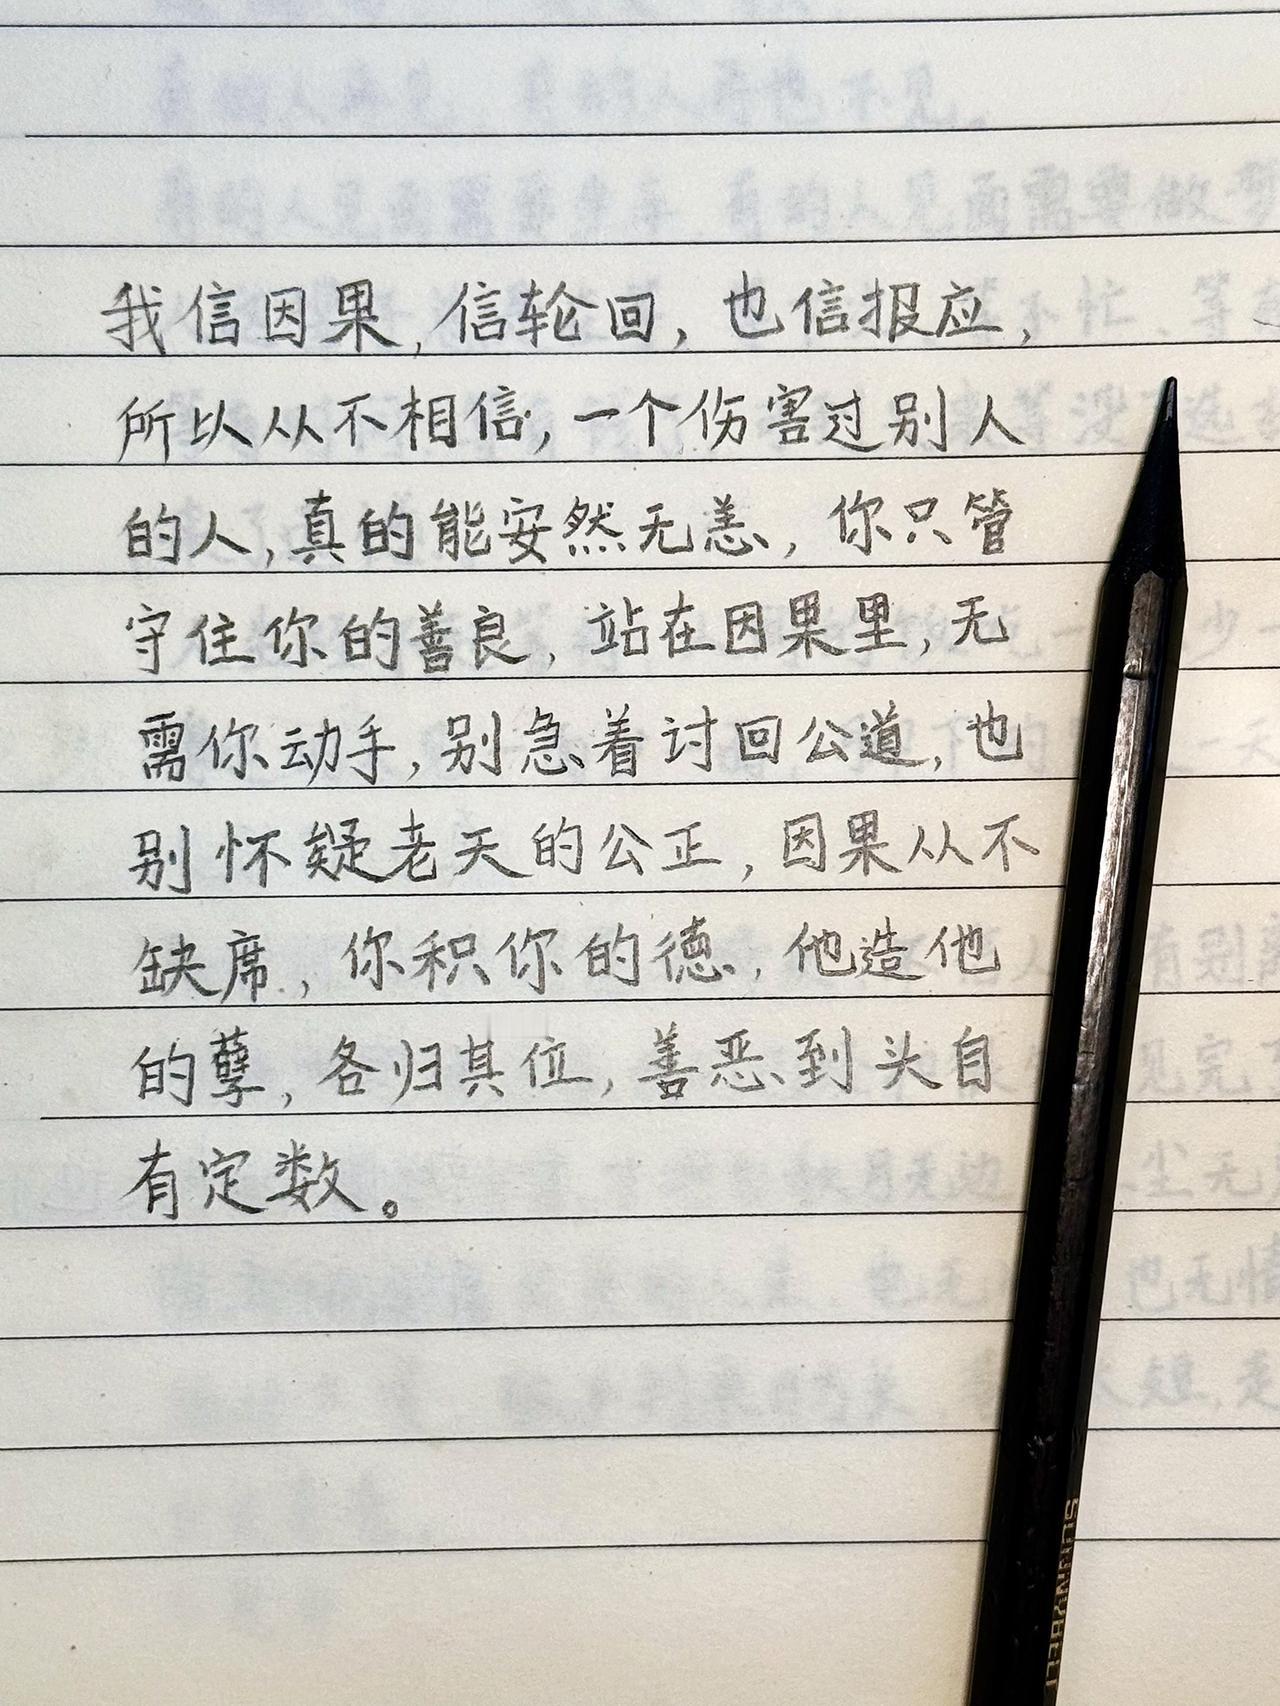 我信因果,信轮回,也信报应,
所以从不相信,一个伤害过别人
的人,真的能安然无恙,你只管
守住你的善良,站在因果里,无
需你动手,别急着讨回公道,也
别怀疑老天的公正,因果从不
缺席,你积你的德,他造他
的孽,各归其位,善恶到头自
有定数。